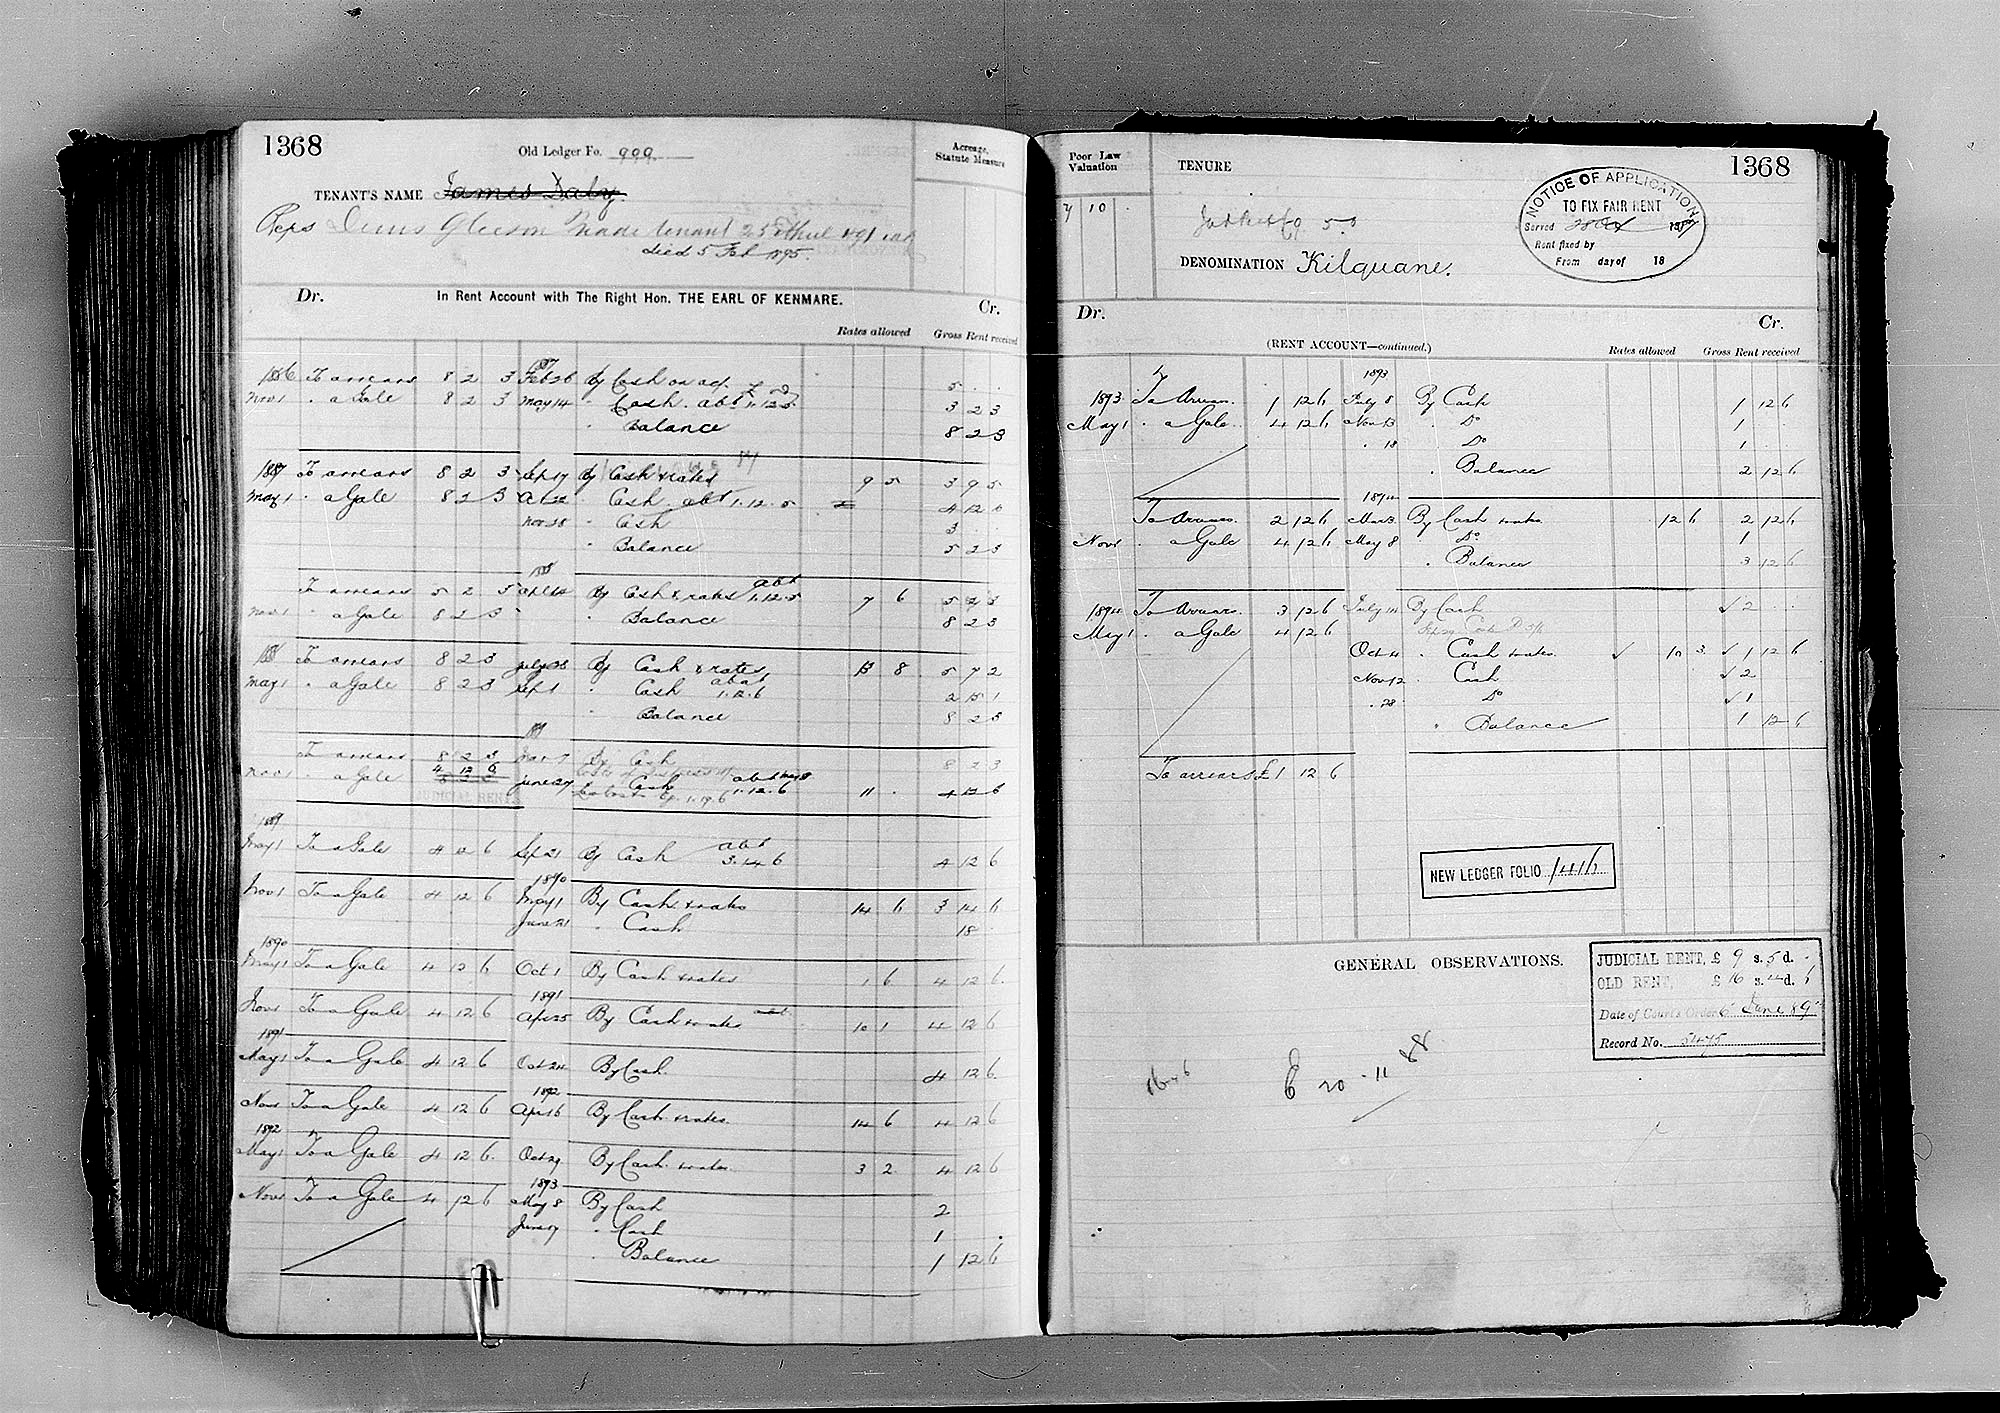 1368
Old Ledger Fo. 999
Acreage, Statute Measure
TENANT'S NAME James Daly
Reps Denis Gleeson Made tenant 25
died 5 Feb 1895.
Dr. In Rent Account with The Right Hon. THE EARL OF KENMARE. Cr.
Rates allowed Gross Rent received
1887
1886 To arrears 8 2 3 Feb 26 By Cash on act. 5 . .
Nov 1 " a Gale 8 2 3 May 14 " Cash abt 1.12.3 3 2 3
" Balance 8 2 3
1887 To arrears 8 2 3 Sep 17 By Cash & rates 9 5 3 9 5
May 1 " a Gale 8 2 3 Oct 22 " Cash abt 1.12.5 4 12 6
Nov 28 " Cash 3
" Balance 5 2 3
1888
To arrears 5 2 3 April 14 By Cash & rates abt 1.12.5 7 6 5 2 3
Nov 1 " a Gale 8 2 3 " Balance 8 2 3
1888 To arrears 8 2 3 July 28 By Cash & rates 13 8 5 7 2
May 1 " a Gale 8 2 3 Sep 1 " Cash abat 1.12.6 2 15 1
" Balance 8 2 3
1889
To arrears 8 2 3 By Cash 8 2 3
4 12 6
Nov 1 " a Gale June 27 Cash abt 1.12.6 11 . 4 12 6
JUDICIAL RENT
1889
May 1 To a Gale 4 12 6 Sep 21 By Cash abt 3.14.6 4 12 6
1890
Nov 1 To a Gale 4 12 6 May 1 By Cash & rates 14 6 3 14 6
June 21 " Cash 18
1890
May 1 To a Gale 4 12 6 Oct 1 By Cash & rates 1 6 4 12 6
1891
Nov 1 To a Gale 4 12 6 Apr 25 By Cash & rates 10 1 4 12 6
1891
May 1 To a Gale 4 12 6 Oct 24 By Cash 4 12 6
1892
Nov 1 To a Gale 4 12 6 Apr 16 By Cash & rates 14 6 4 12 6
1892
May 1 To a Gale 4 12 6 Oct 29 By Cash & rates 3 2 4 12 6
1893
Nov 1 To a Gale 4 12 6 May 8 By Cash 2
June 17 " Cash 1
" Balance 1 12 6
Poor Law Valuation
TENURE
1368
7 10 .
NOTICE OF APPLICATION
TO FIX FAIR RENT
Served 28 Oct 1887
Rent fixed by
From day of 18
DENOMINATION Kilquane.
Dr. Cr.
(RENT ACCOUNT—continued.)
Rates allowed Gross Rent received
1893
1893 To Arrears 1 12 6 July 8 By Cash 1 12 6
May 1 " a Gale 4 12 6 Nov 13 " Do 1
" 18 " Do 1
" Balance 2 12 6
1894
To Arrears 2 12 6 Mar 3 By Cash & rates 12 6 2 12 6
Nov 1 " a Gale 4 12 6 May 8 " Do 1
" Balance 3 12 6
1894 To Arrears 3 12 6 July 14 By Cash 2
May 1 " a Gale 4 12 6
Oct 4 " Cash & rates 10 3 1 12 6
Nov 12 Cash 2
" 28 Do 1
" Balance 1 12 6
To arrears £1 12 6
NEW LEDGER FOLIO 1416
GENERAL OBSERVATIONS.
JUDICIAL RENT, £ 9 s. 5 d. .
OLD RENT, £ 16 s. 4 d. 6
Date of Court's Order 6 June 89
Record No. 5475
16.4.6
£ 20.11.88